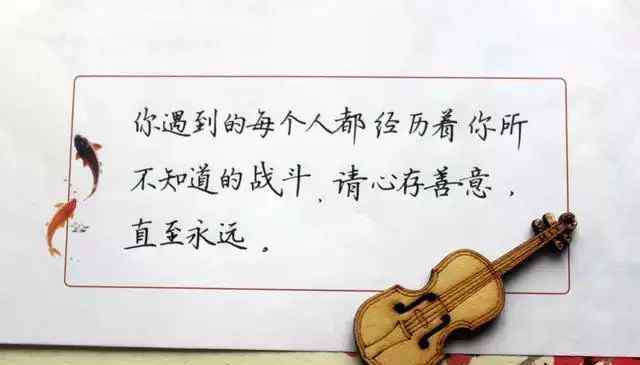 你遇到的每个人都经历着你所
不知道的战斗、请心存善意，
直至永远。